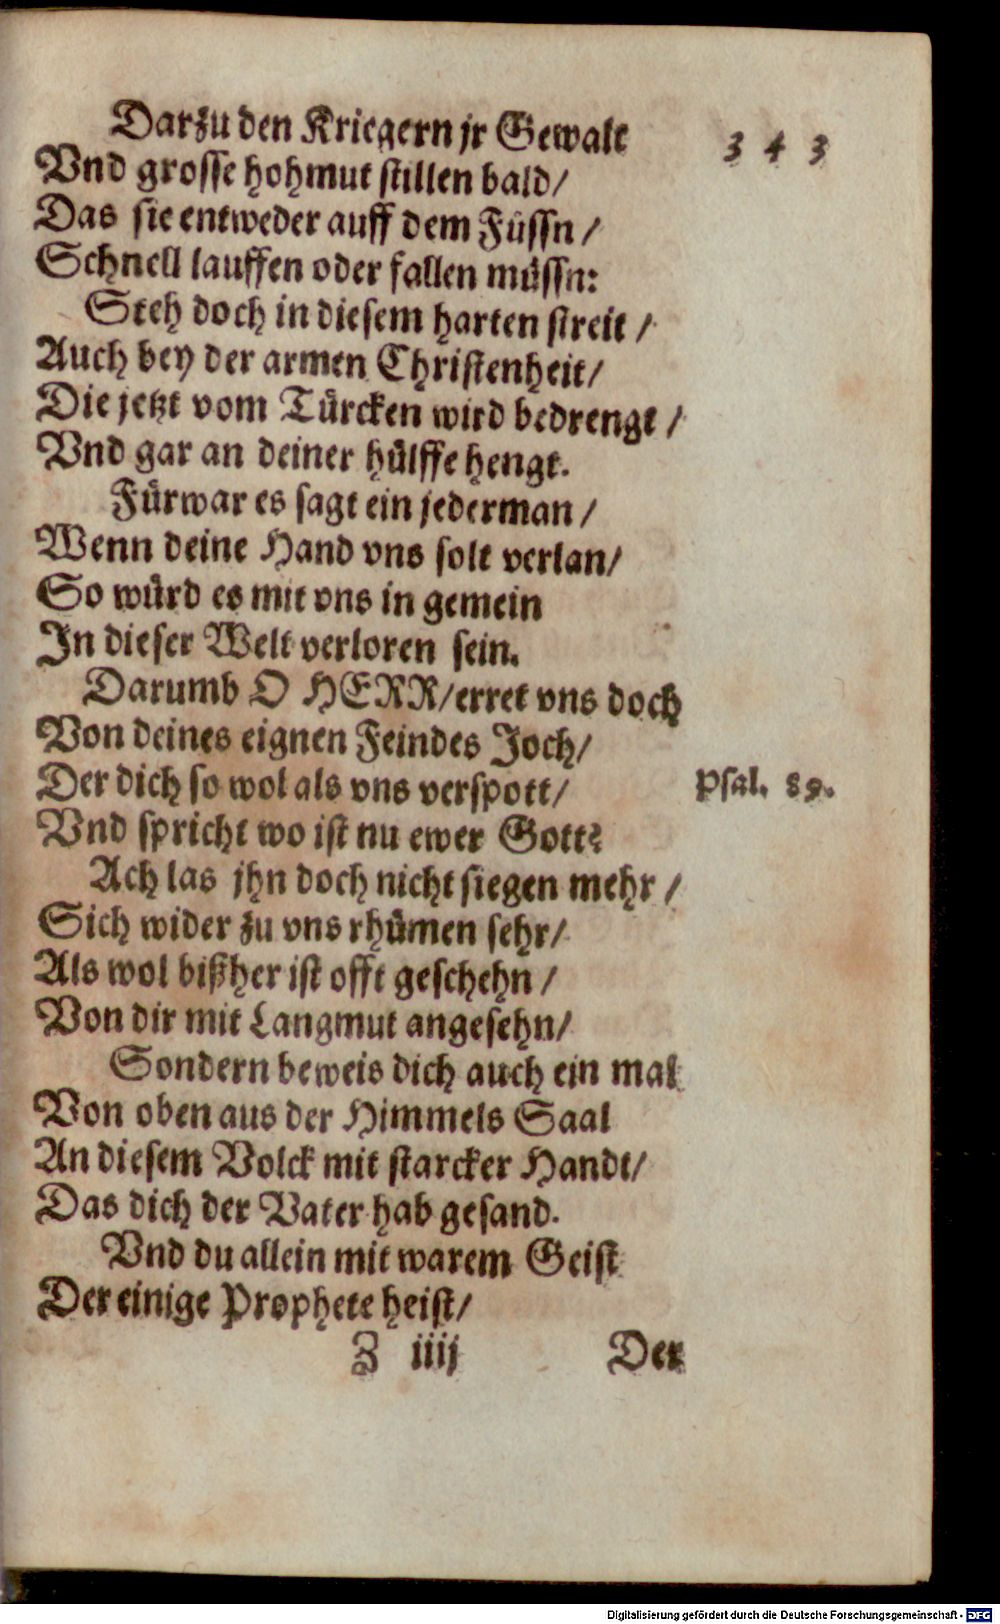 Darzu den Kriegern jr Gewalt
343
Vnd grosse hohmut stillen bald/
Das sie entweder auff dem Füssn/
Schnell lauffen oder fallen müssn:
Steh doch in diesem harten streit/
Auch bey der armen Christenheit/
Die jetzt vom Türcken wird bedrengt/
Vnd gar an deiner hülffe hengt.
Fürwar es sagt ein jederman/
Wenn deine Hand vns solt verlan/
So würd es mit vns in gemein
In dieser Welt verloren sein.
Darumb O HERR/erret vns doch
Von deines eignen Feindes Joch/
Der dich so wol als vns verspott/
Psal. 89.
Vnd spricht wo ist nu ewer Gott?
Ach las jhn doch nicht siegen mehr/
Sich wider zu vns rhümen sehr/
Als wol bißher ist offt geschehn/
Von dir mit Langmut angesehn/
Sondern beweis dich auch ein mal
Von oben aus der Himmels Saal
An diesem Volck mit starcker Handt/
Das dich der Vater hab gesand.
Vnd du allein mit warem Geist
Der einige Prophete heist/
Z iiij
Der
Digitalisierung gefördert durch die Deutsche Forschungsgemeinschaft - DFG